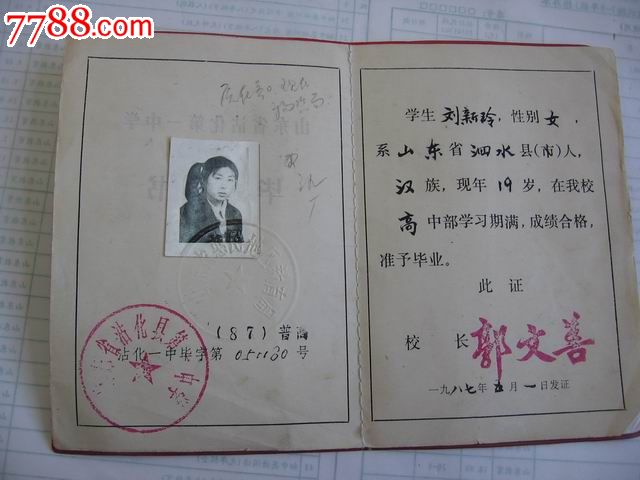 7788.com
中国收藏热线
山东省沾化第一中学
毕 书
(87)普高
沾化一中毕字第051130号
学生刘新玲,性别女,
系山东省泗水县(市)人,
汉族,现年19岁,在我校
高中部学习期满,成绩合格,
准予毕业。
此证
校长郭文善
一九八七年五月一日发证